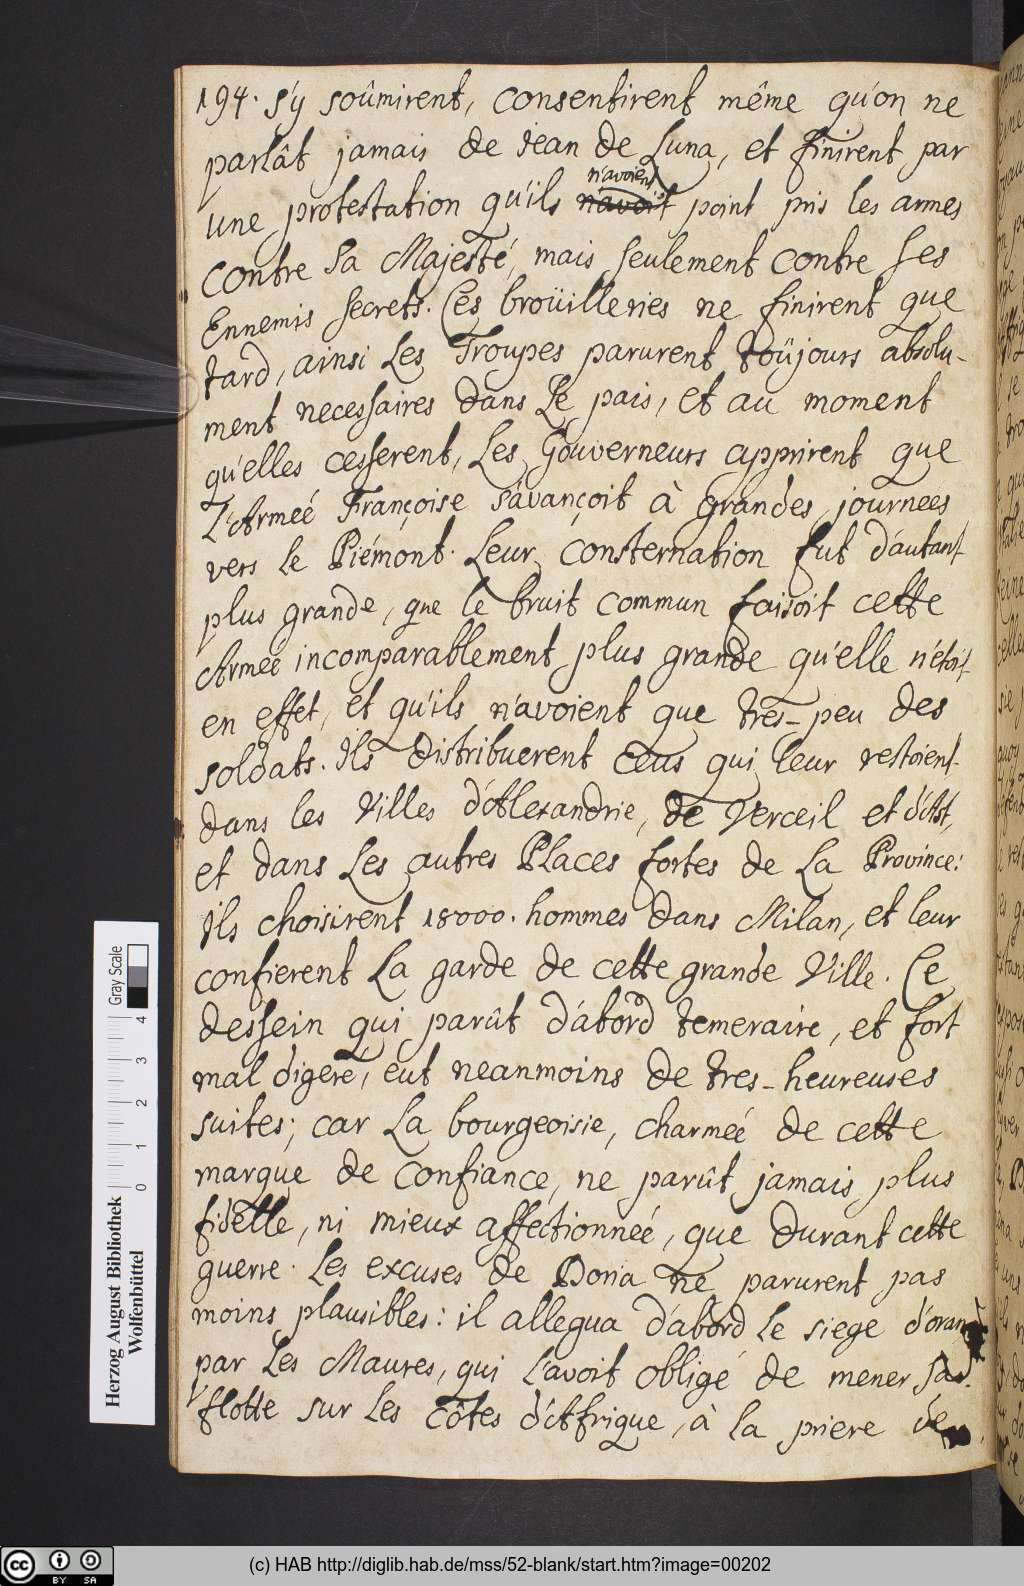 194. s'y soûmirent, consentirent même qu'on ne
parlât jamais de Jean de Luna, et finirent par
n'avoient
une protestation qu'ils n'avoit point pris les armes
contre sa Majesté, mais seulement contre ses
Ennemis secrets. Ces broüilleries ne finirent que
tard, ainsi Les Troupes parurent toüjours absolu-
ment necessaires dans Le pais, et au moment
qu'elles cesserent, Les Gouverneurs apprirent que
L'Armeé Françoise s'avançoit à grandes journees
vers le Piémont. Leur consternation fut d'autant
plus grande, que le bruit commun faisoit cette
Armee incomparablement plus grande qu'elle n'étoit
en effet, et qu'ils n'avoient que tres-peu des
soldats. Ils distribuerent ceus qui leur restoient
dans les Villes d'Alexandrie, de Verceil et d'Ast,
et dans Les autres Places fortes de La Province:
Ils choisirent 18000. hommes dans Milan, et leur
confierent La garde de cette grande Ville. Ce
dessein qui parût d'abord temeraire, et fort
mal digere, eut neanmoins de tres-heureuses
suites; car La bourgeoisie, charmeé de cette
marque de confiance, ne parût jamais plus
fidelle, ni mieux affectionneé, que durant cette
guerre. Les excuses de Doria ne parurent pas
moins plausibles: il allegua d'abord le siege d'oran
par Les Maures, qui l'avoit obligé de mener sa
flotte sur Les côtes d'Afrique, à la priere de
Herzog August Bibliothek
Wolfenbüttel
0 1 2 3 4
Gray Scale
cc BY SA
(c) HAB http://diglib.hab.de/mss/52-blank/start.htm?image=00202